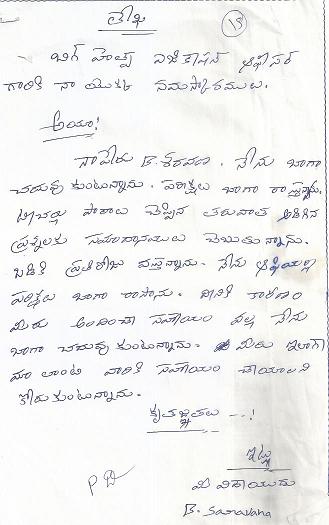 లేఖ
19
బిగ్ హెల్ప్ ఎడికాషన్ ఆఫీసర్
గారికి నా యొక్క నమస్కారములు.
అయా!
నా పేరు B. శరవణ. నేను బాగా
చదువు కుంటున్నాను. పరీక్షలు బాగా రాస్తున్నాను.
టీచర్లు పాఠాలు చెప్పిన తరువాత అడిగిన
ప్రశ్నలకు సమాదానములు చెబుతున్నాను.
బడికి ప్రతిరోజు వస్తున్నాను. నేను
పరీక్షలు బాగా రాసాను. దీనికి కారణం
మీరు అందించా సహాయం వల్ల నేను
బాగా చదువు కుంటున్నాను. మీరు ఇలాగే
మా లాంటి వారికి సహాయం చేయాలని
కోరుకుంటున్నాను.
కృతజ్ఞతలు ---!
ఇట్లు
మీ విదాయుదు
B. Saravana